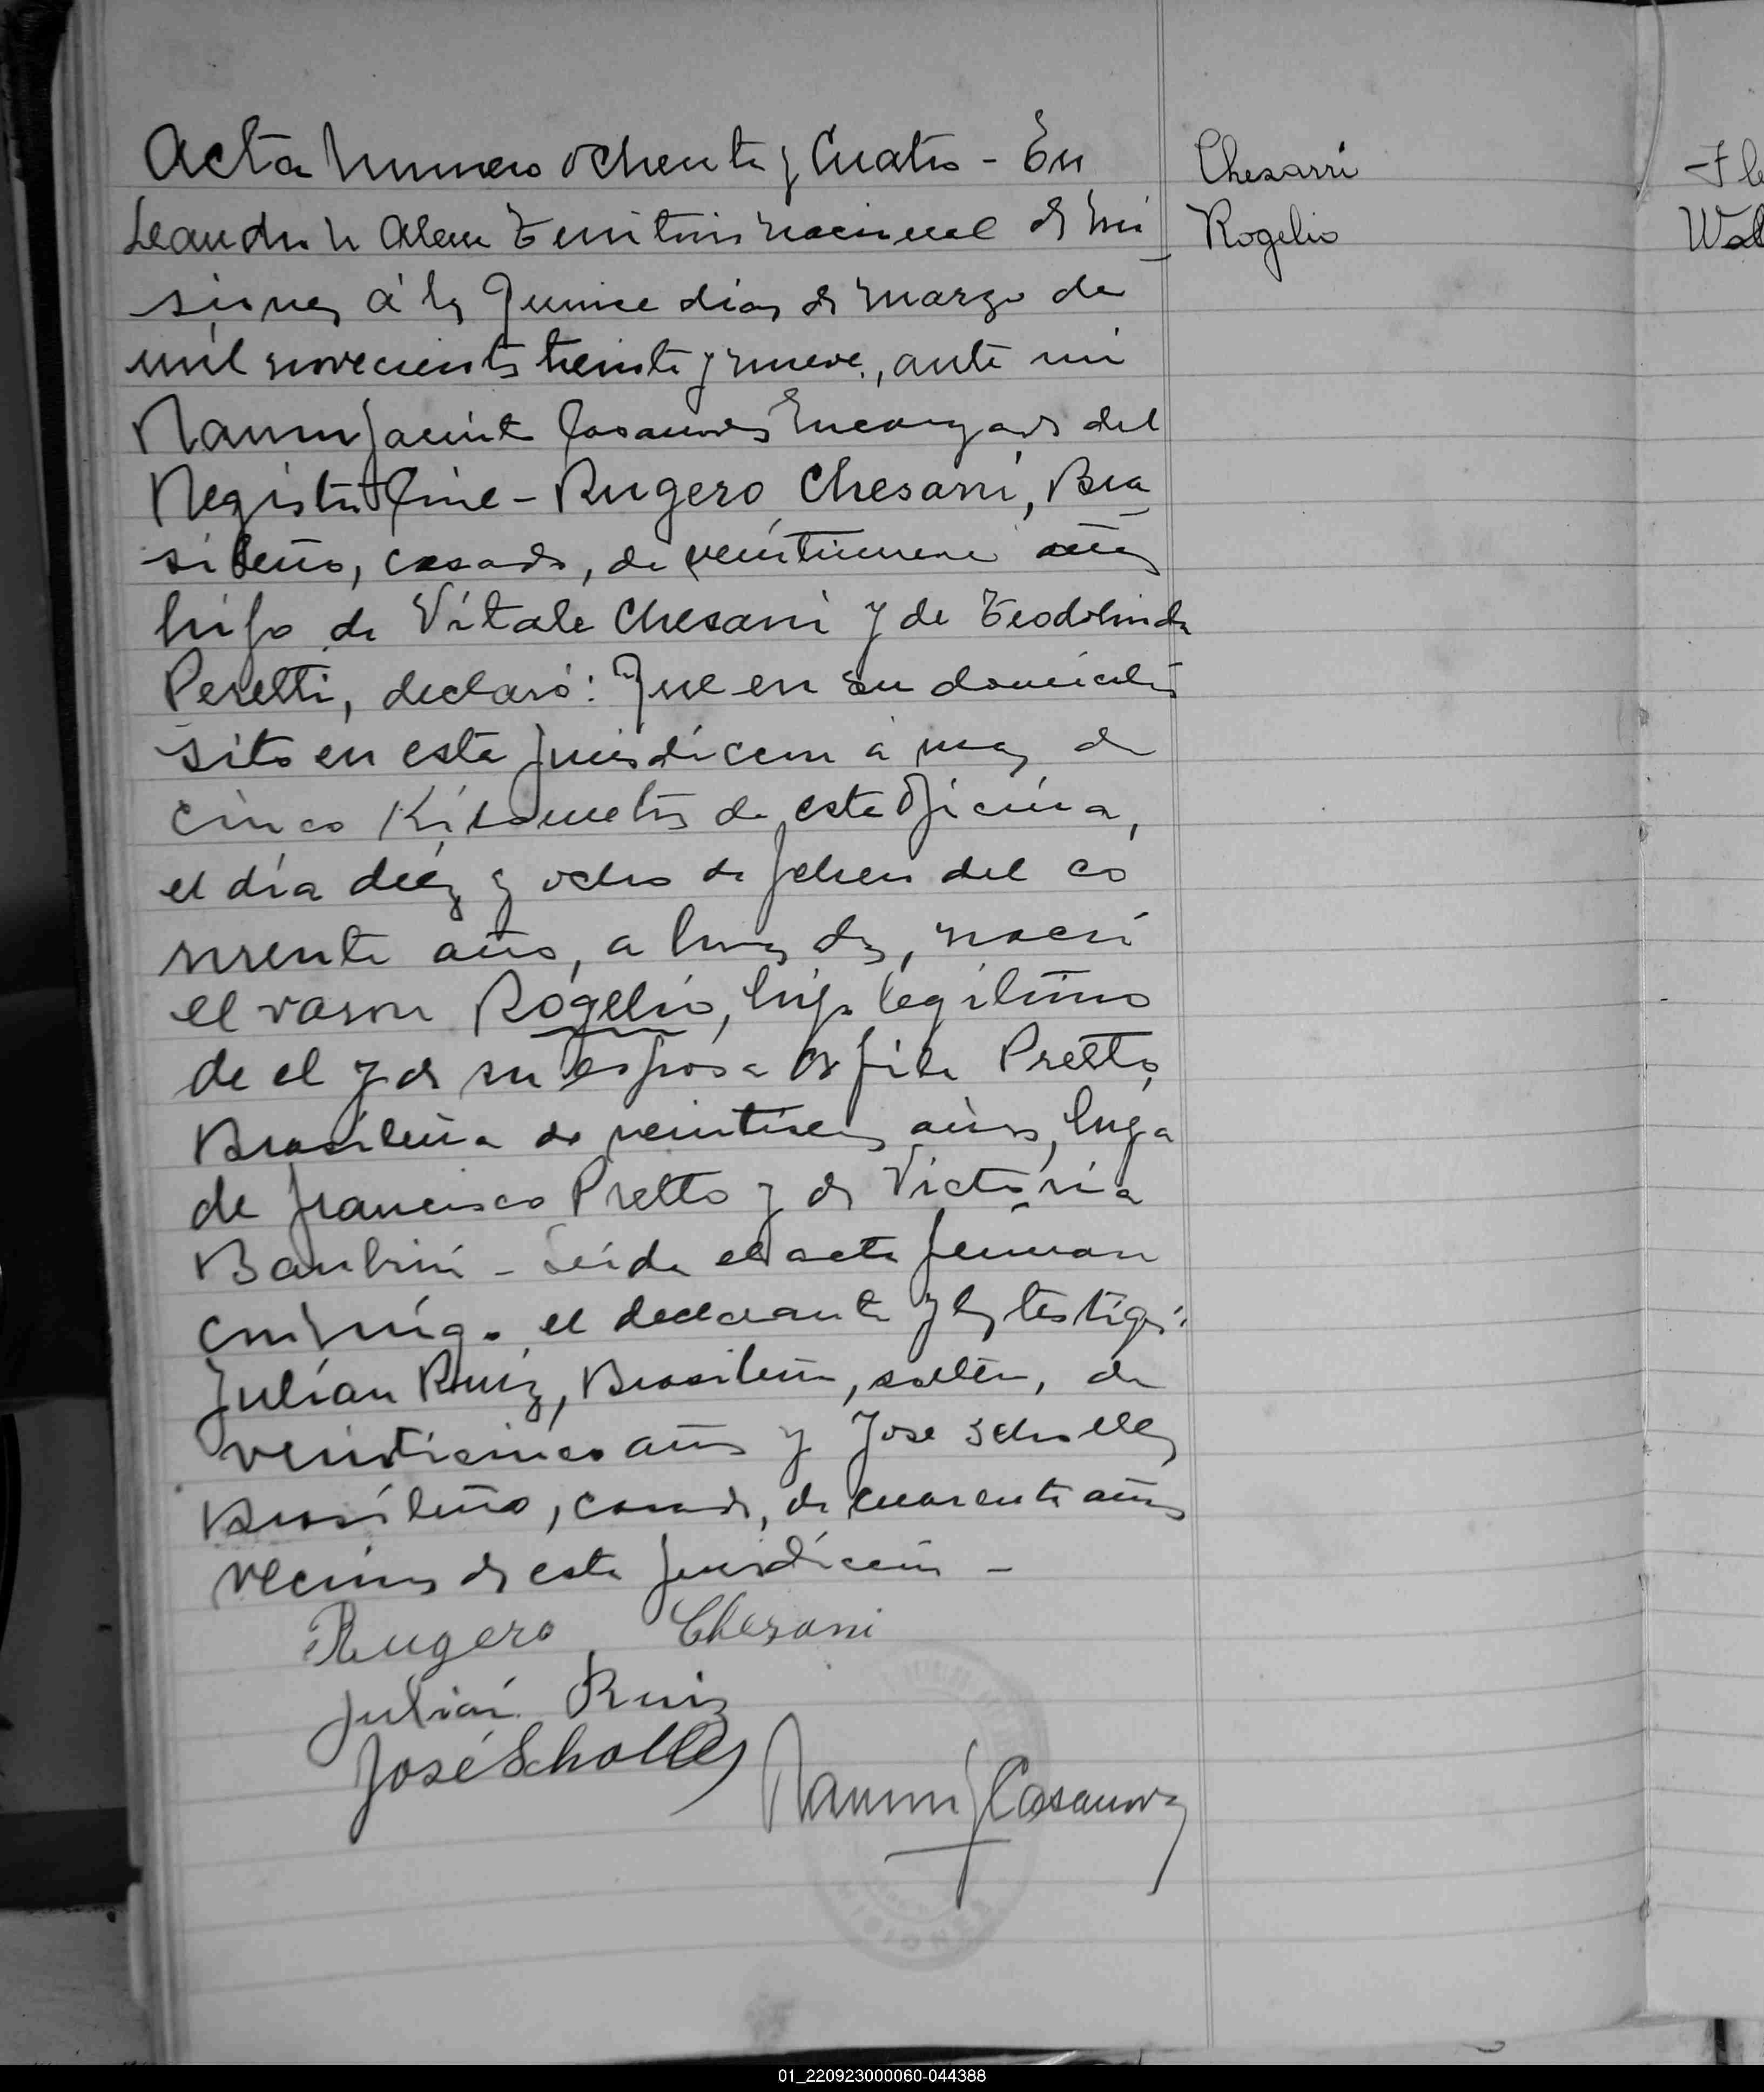 Acta Numero ochenta y Cuatro - En
Leandro N Alem Territorio Nacional de Mi
siones á los Quince dias de Marzo de
mil novecientos treinta y nueve, ante mi
Ramon Jacinto Casanova Encargado del
Registro Civil - Rugero Chesarri, Bra
sileño, casado, de veintinueve años
hijo de Vitale Chesarri y de Teodolinda
Peretti, declaró: Que en su domicilio
sito en esta Jurisdiccion a mas de
cinco Kilometros de esta Oficina,
el día diez y ocho de febrero del co
rriente año, a horas dos, nació
el varon Rogelio, hijo legitimo
de el y de su esposa Pretto,
Brasileña de veintiseis años, hija
de Francisco Pretto y de Victoria
- Leida el acta firman
conmigo el declarante y los testigos:
Julián Ruiz, Brasileño, soltero, de
veinticinco años y Jose Scholles
Brasileño, casado, de cuarenta años
vecinos de esta Jurisdiccion -
Rugero Chesarri
Julián Ruiz
José Scholles
Ramon J Casanova
MISIONES
Chesarri
Rogelio
01_220923000060-044388